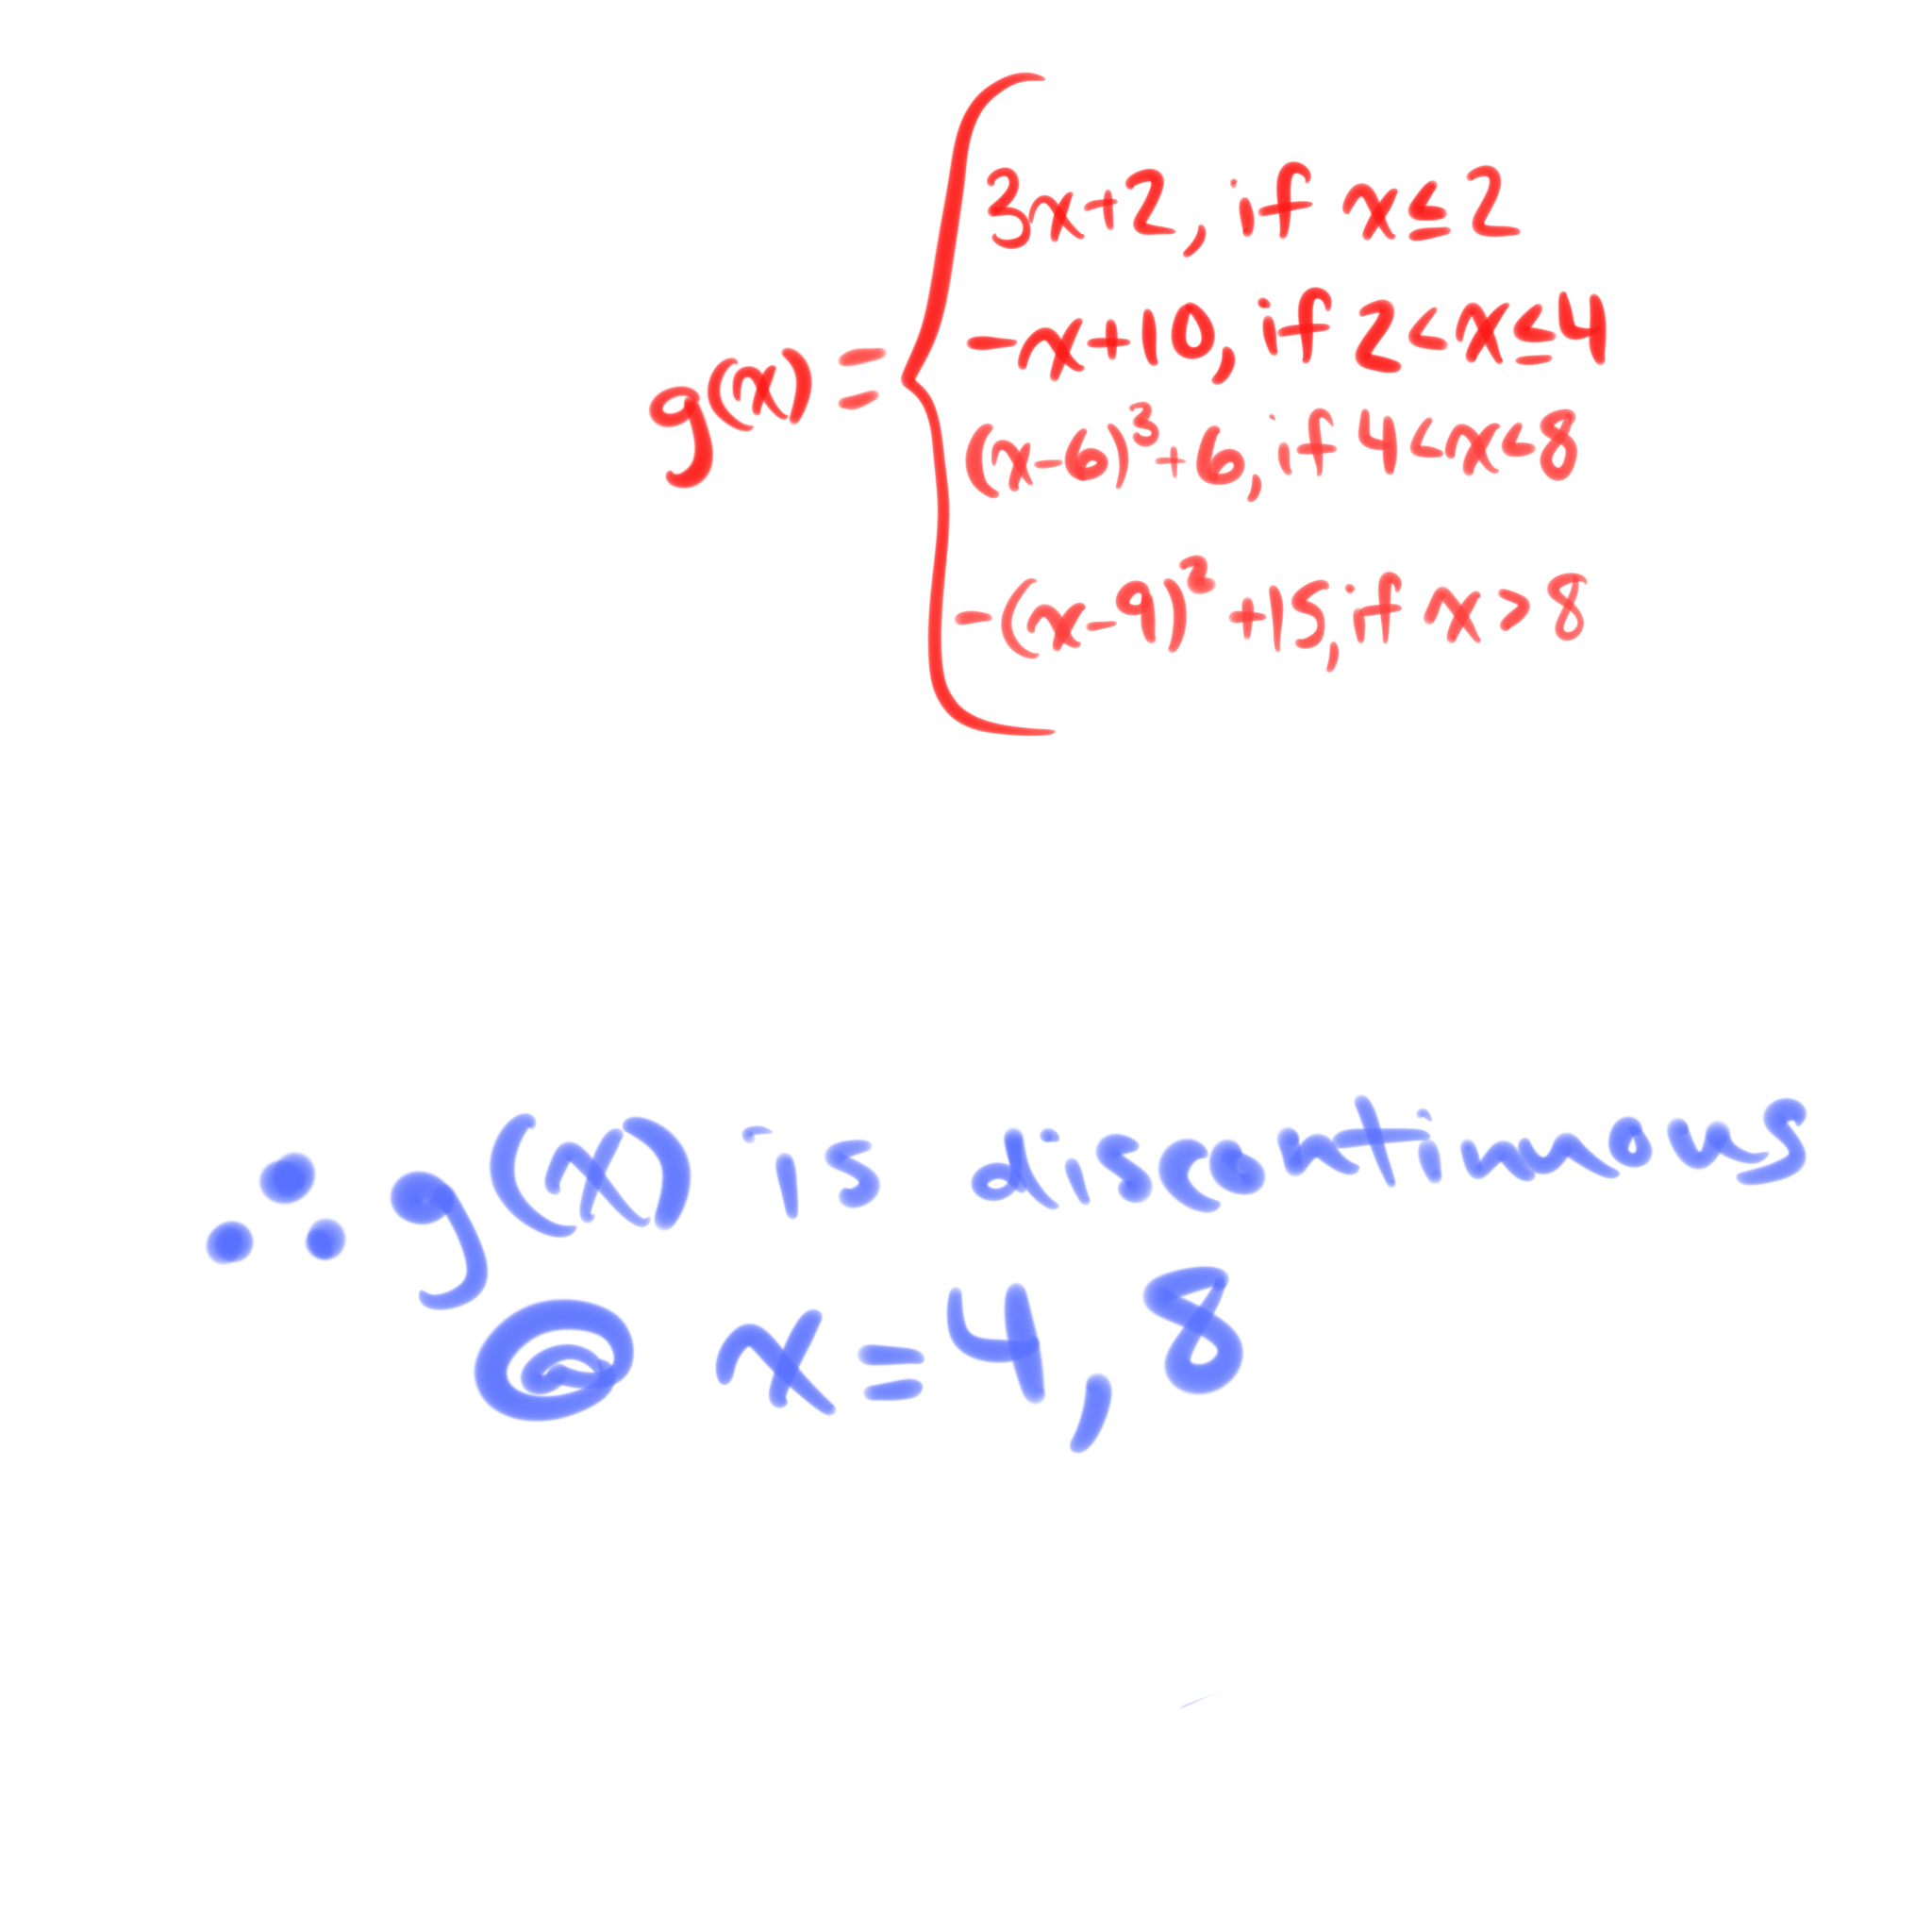 g(x) = { 3x+2, if x ≤ 2
-x+10, if 2<x≤4
(x-6)³+6, if 4<x<8
-(x-9)²+15, if x>8
∴ g(x) is discontinuous
@ x=4, 8